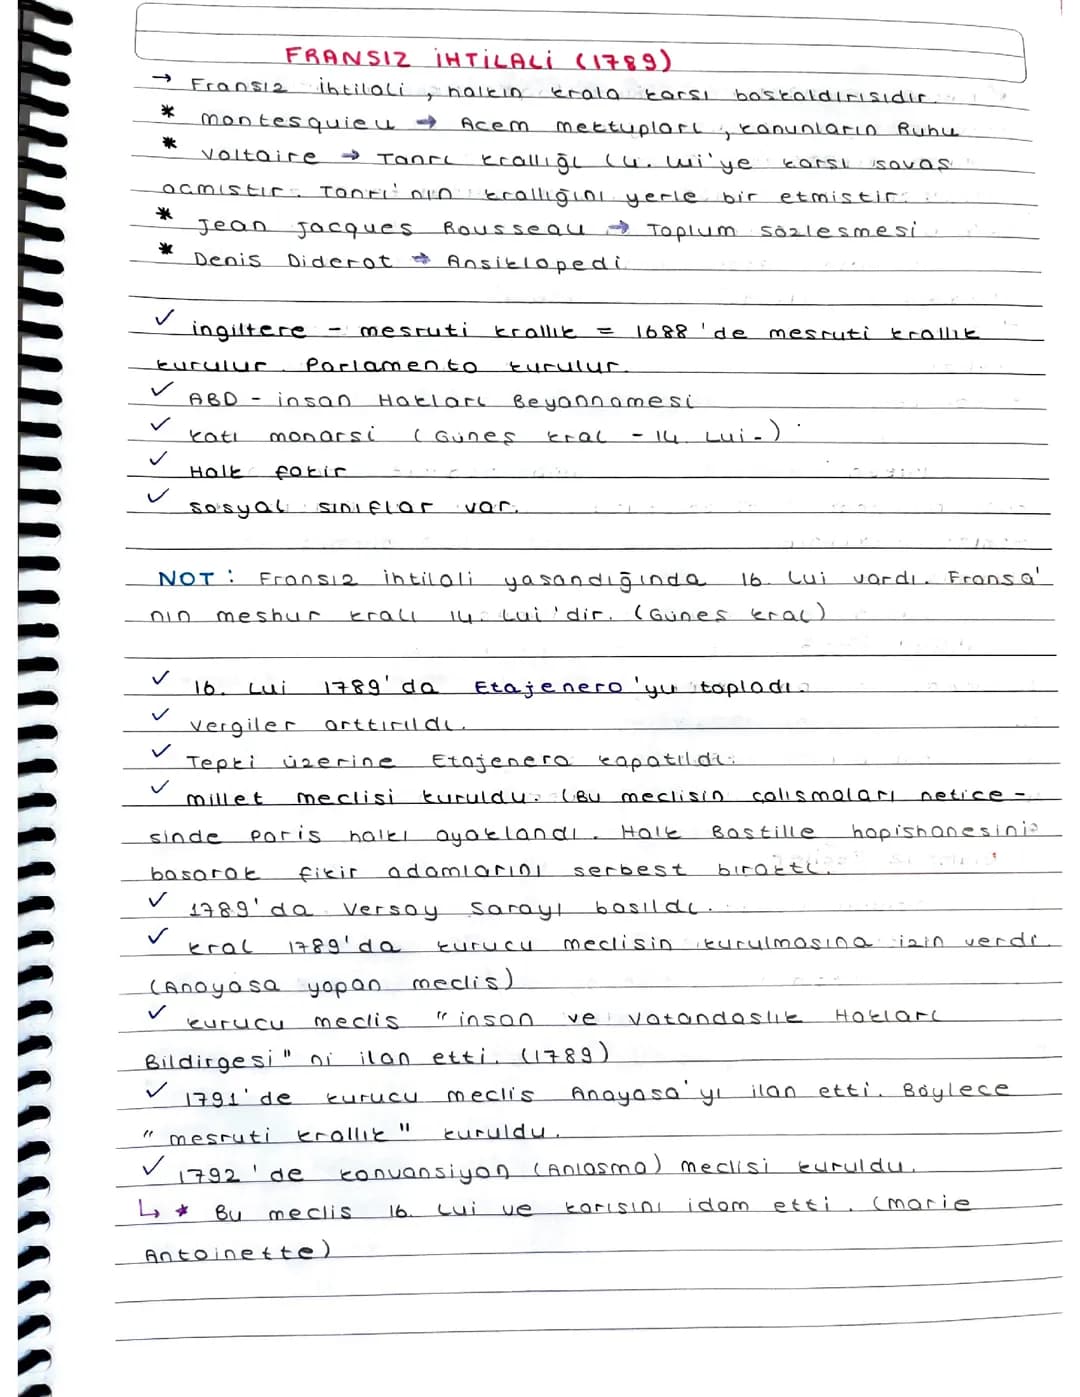 FRANSIZ İHTİLALİ (1789)
→ Fransız ihtilali, halkın krala karsı baskaldırısıdır.
* montesquieu → Acem mektupları, kanunların Ruhu
* Voltaire → Tanrı krallığı (4. lui'ye karsı savas
acmıstır. Tanrı'nın krallığını yerle bir etmistir.
* Jean Jacques Rousseau → Toplum sözlesmesi
* Denis Diderot → Ansiklopedi
✓ ingiltere - mesruti krallık = 1688'de mesruti krallık
kurulur. Parlamento kurulur.
✓ ABD - insan Hakları Beyannamesi
✓ katı monarsi (Güneş kral - 14. Lui-)
✓ Halk fakir
✓ sosyal sınıflar var.
NOT: Fransız ihtilali yasandığında 16. Lui vardı. Fransa'
nın meshur kralı 14. Lui'dir. (Günes kral)
✓ 16. Lui 1789'da Etajenero'yu topladı.
✓ vergiler arttırıldı.
✓ Tepki üzerine Etajenera kapatıldı.
✓ millet meclisi kuruldu. (Bu meclisin calısmaları netice-
sinde Paris halkı ayaklandı. Halk Bastille hapishanesini
basarak fikir adamlarını serbest bıraktı.
✓ 1789'da Versay Sarayı basıldı.
✓ kral 1789'da kurucu meclisin kurulmasına izin verdi.
(Anayasa yapan meclis)
✓ kurucu meclis "insan ve Vatandaslık Hakları
Bildirgesi" ni ilan etti. (1789)
✓ 1791'de kurucu meclis Anayasa'yı ilan etti. Böylece
"mesruti krallık" kuruldu.
✓ 1792'de konvansiyon (Anlasma) meclisi kuruldu.
↳ * Bu meclis 16. Lui ve karısını idam etti. (marie
Antoinette)